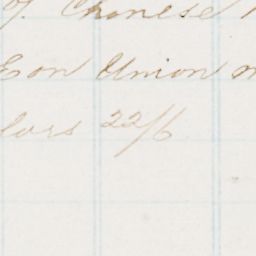 of. Chinese
Eon Union
lars 22/6